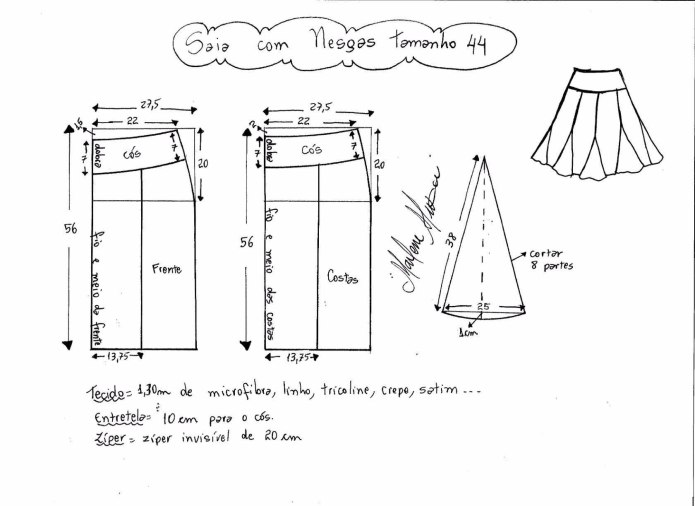 Saia com Nesgas tamanho 44
27,5
22
1,5
7
dobra
cós
7
20
56
fio e meio da frente
Frente
13,75
27,5
22
2
7
dobra
cós
7
20
56
fio e meio das costas
Costas
13,75
38
cortar
8 partes
25
1cm
Tecido= 1,30m de microfibra, linho, tricoline, crepe, satim ...
Entretela= 10 cm para o cós.
Zíper = zíper invisível de 20 cm